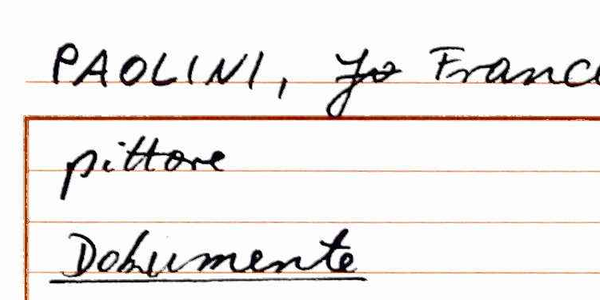 PAOLINI, Jo Franc
pittore
Dokumente